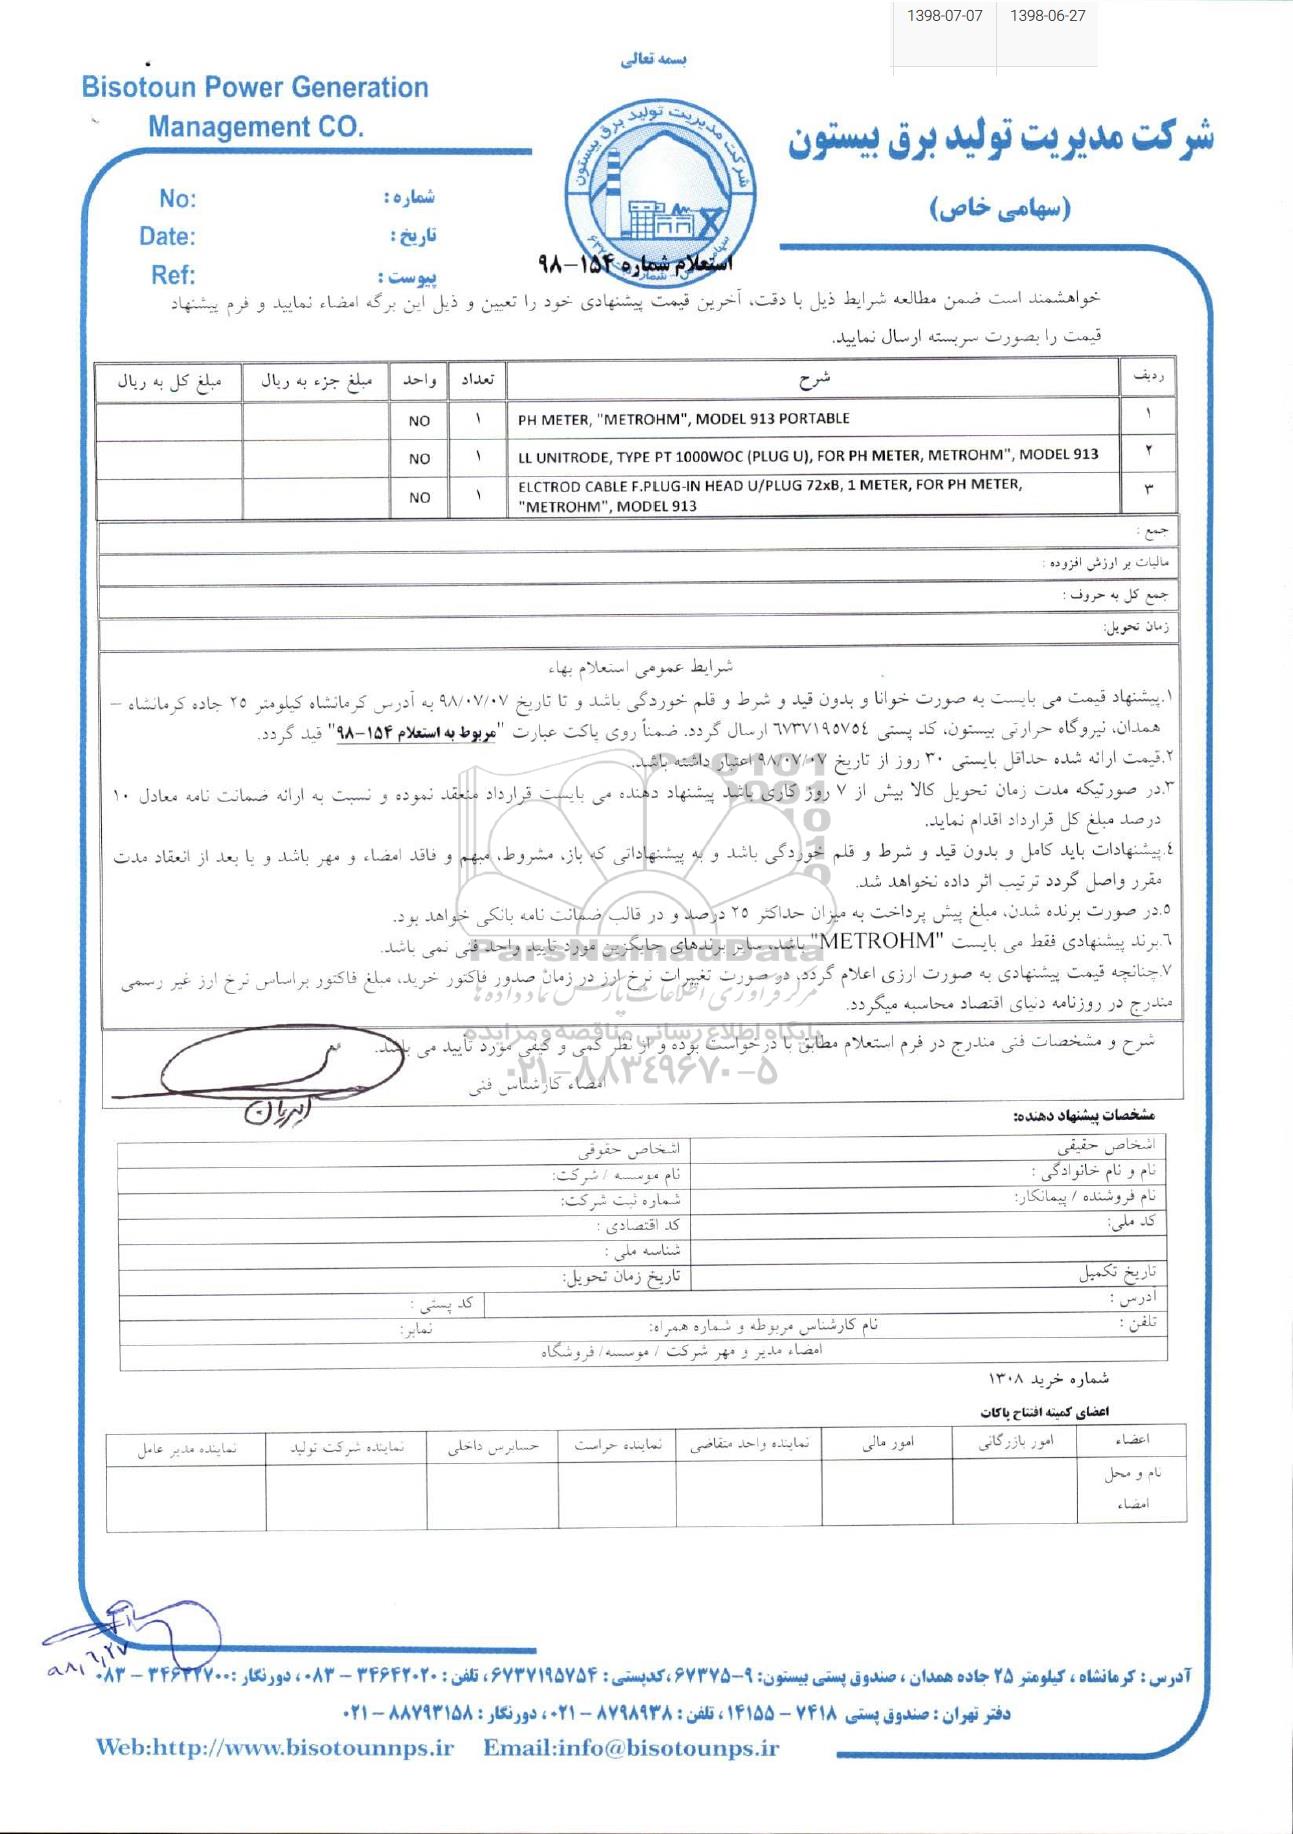 1398-07-07 1398-06-27
بسمه تعالی
Bisotoun Power Generation
Management CO.
شرکت مدیریت تولید برق بیستون
(سهامی خاص)
شرکت مدیریت تولید برق بیستون
No: شماره :
Date: تاریخ :
Ref: پیوست :
استعلام شماره ۱۵۴-۹۸
خواهشمند است ضمن مطالعه شرایط ذیل با دقت، آخرین قیمت پیشنهادی خود را تعیین و ذیل این برگه امضاء نمایید و فرم پیشنهاد
قیمت را بصورت سربسته ارسال نمایید.
ردیف شرح تعداد واحد مبلغ جزء به ریال مبلغ کل به ریال
۱ PH METER, "METROHM", MODEL 913 PORTABLE ۱ NO
۲ LL UNITRODE, TYPE PT 1000WOC (PLUG U), FOR PH METER, METROHM", MODEL 913 ۱ NO
۳ ELCTROD CABLE F.PLUG-IN HEAD U/PLUG 72xB, 1 METER, FOR PH METER,
"METROHM", MODEL 913 ۱ NO
جمع :
مالیات بر ارزش افزوده :
جمع کل به حروف :
زمان تحویل:
شرایط عمومی استعلام بهاء
۱.پیشنهاد قیمت می بایست به صورت خوانا و بدون قید و شرط و قلم خوردگی باشد و تا تاریخ ۹۸/۰۷/۰۷ به آدرس کرمانشاه کیلومتر ۲۵ جاده کرمانشاه –
همدان، نیروگاه حرارتی بیستون، کد پستی ۶۷۳۷۱۹۵۷۵۴ ارسال گردد. ضمناً روی پاکت عبارت "مربوط به استعلام ۱۵۴-۹۸" قید گردد.
۲.قیمت ارائه شده حداقل بایستی ۳۰ روز از تاریخ ۹۸/۰۷/۰۷ اعتبار داشته باشد.
۳.در صورتیکه مدت زمان تحویل کالا بیش از ۷ روز کاری باشد پیشنهاد دهنده می بایست قرارداد منعقد نموده و نسبت به ارائه ضمانت نامه معادل ۱۰
درصد مبلغ کل قرارداد اقدام نماید.
۴.پیشنهادات باید کامل و بدون قید و شرط و قلم خوردگی باشد و به پیشنهاداتی که باز، مشروط، مبهم و فاقد امضاء و مهر باشد و یا بعد از انعقاد مدت
مقرر واصل گردد ترتیب اثر داده نخواهد شد.
۵.در صورت برنده شدن، مبلغ پیش پرداخت به میزان حداکثر ۲۵ درصد و در قالب ضمانت نامه بانکی خواهد بود.
۶.برند پیشنهادی فقط می بایست "METROHM" باشد، سایر برندهای جایگزین مورد تایید واحد فنی نمی باشد.
۷.چنانچه قیمت پیشنهادی به صورت ارزی اعلام گردد، در صورت تغییرات نرخ ارز در زمان صدور فاکتور خرید، مبلغ فاکتور براساس نرخ ارز غیر رسمی
مندرج در روزنامه دنیای اقتصاد محاسبه میگردد.
ParsNamadData
مرکز فرآوری اطلاعات پارس نماد داده ها
پایگاه اطلاع رسانی مناقصه و مزایده
۰۲۱-۸۸۳۴۹۶۷۰-۵
شرح و مشخصات فنی مندرج در فرم استعلام مطابق با درخواست بوده و از نظر کمی و کیفی مورد تأیید می باشد.
امضاء کارشناس فنی
مشخصات پیشنهاد دهنده:
اشخاص حقیقی اشخاص حقوقی
نام و نام خانوادگی : نام موسسه / شرکت:
نام فروشنده / پیمانکار: شماره ثبت شرکت:
کد ملی: کد اقتصادی :
شناسه ملی :
تاریخ تکمیل تاریخ زمان تحویل:
آدرس : کد پستی :
تلفن : نام کارشناس مربوطه و شماره همراه: نمابر:
امضاء مدیر و مهر شرکت / موسسه/ فروشگاه
شماره خرید ۱۳۰۸
اعضای کمیته افتتاح پاکات
اعضاء امور بازرگانی امور مالی نماینده واحد متقاضی نماینده حراست حسابرس داخلی نماینده شرکت تولید نماینده مدیر عامل
نام و محل
امضاء
۹۸,۶,۲۷
آدرس : کرمانشاه ، کیلومتر ۲۵ جاده همدان ، صندوق پستی بیستون: ۹-۶۷۳۷۵ ، کدپستی : ۶۷۳۷۱۹۵۷۵۴ ، تلفن : ۳۴۶۴۲۰۲۰ – ۰۸۳ ، دورنگار : ۳۴۶۴۲۷۰۰ – ۰۸۳
دفتر تهران : صندوق پستی ۷۴۱۸ – ۱۴۱۵۵ ، تلفن : ۸۷۹۸۹۳۸ – ۰۲۱ ، دورنگار : ۸۸۷۹۳۱۵۸ – ۰۲۱
Web:http://www.bisotounnps.ir Email:info@bisotounps.ir